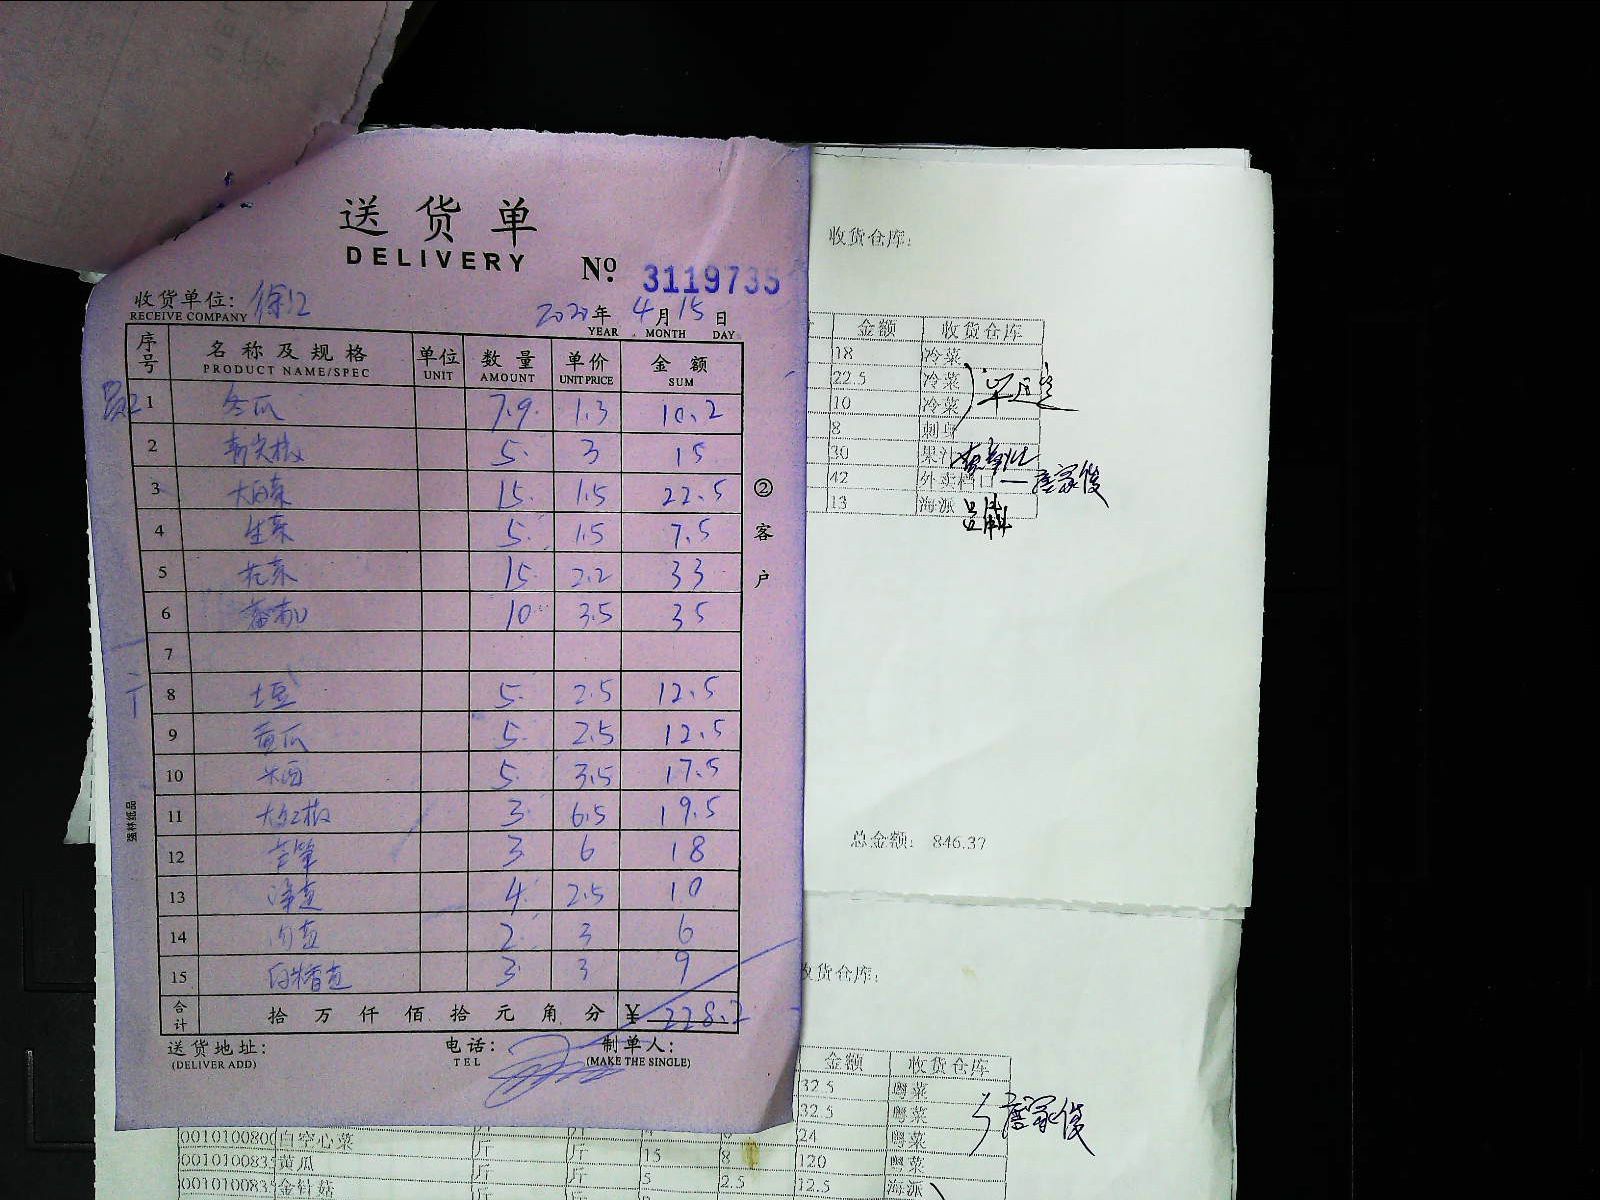 送货单
DELIVERY
Nº 3119735
收货单位: 徐汇
RECEIVE COMPANY
2020年 4月 15日
YEAR MONTH DAY
序号 名称及规格 单位 数量 单价 金额
PRODUCT NAME/SPEC UNIT AMOUNT UNIT PRICE SUM
1 冬瓜 7.9 1.3 10.2
2 青尖椒 5 3 15
3 大白菜 15 1.5 22.5
4 生菜 5 1.5 7.5
5 花菜 15 2.2 33
6 番茄 10 3.5 35
7
8 土豆 5 2.5 12.5
9 黄瓜 5 2.5 12.5
10 5 3.5 17.5
11 大红椒 3 6.5 19.5
12 3 6 18
13 4 2.5 10
14 2 3 6
15 3 3 9
合计 拾万仟佰拾元角分 ¥ 228.2
送货地址: 电话: 制单人:
(DELIVER ADD) TEL (MAKE THE SINGLE)
②客户
强林纸品
收货仓库:
金额 收货仓库
18 冷菜
22.5 冷菜
10 冷菜
8 刺身
30 果汁
42 外卖档口
13 海派
总金额: 846.37
收货仓库:
金额 收货仓库
32.5 粤菜
32.5 粤菜
24 粤菜
00101008 白空心菜 斤 斤
00101008 黄瓜 斤 斤 15 8 120 粤菜
00101008 金针菇 斤 斤 5 2.5 12.5 海派